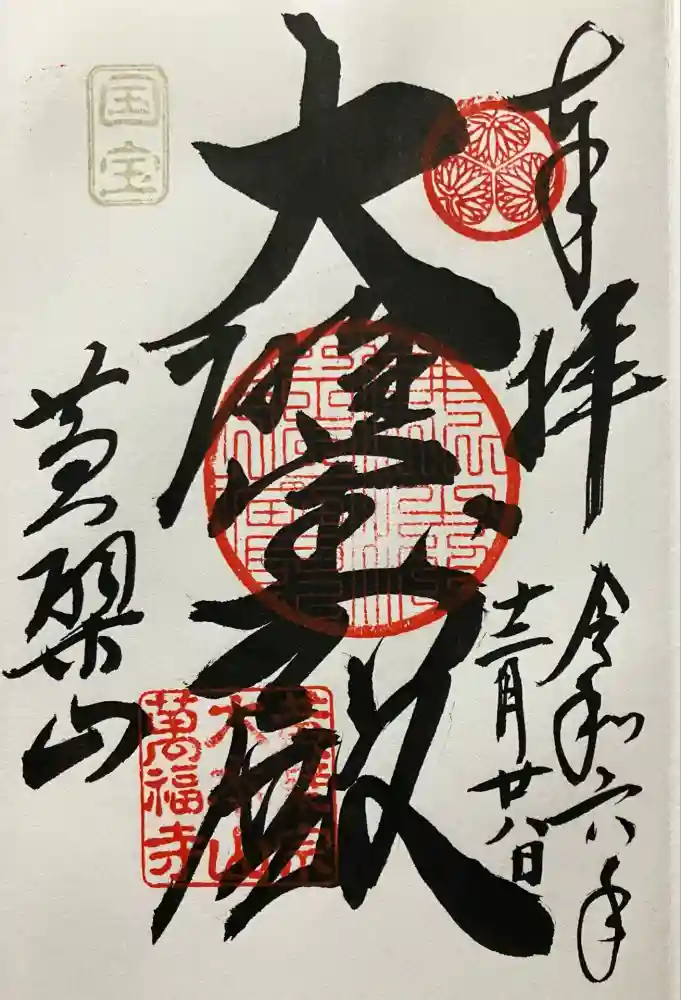 奉拝
令和六年
十二月廿八日
大雄宝殿
国宝
黄檗山
黄檗宗
大本山
萬福寺